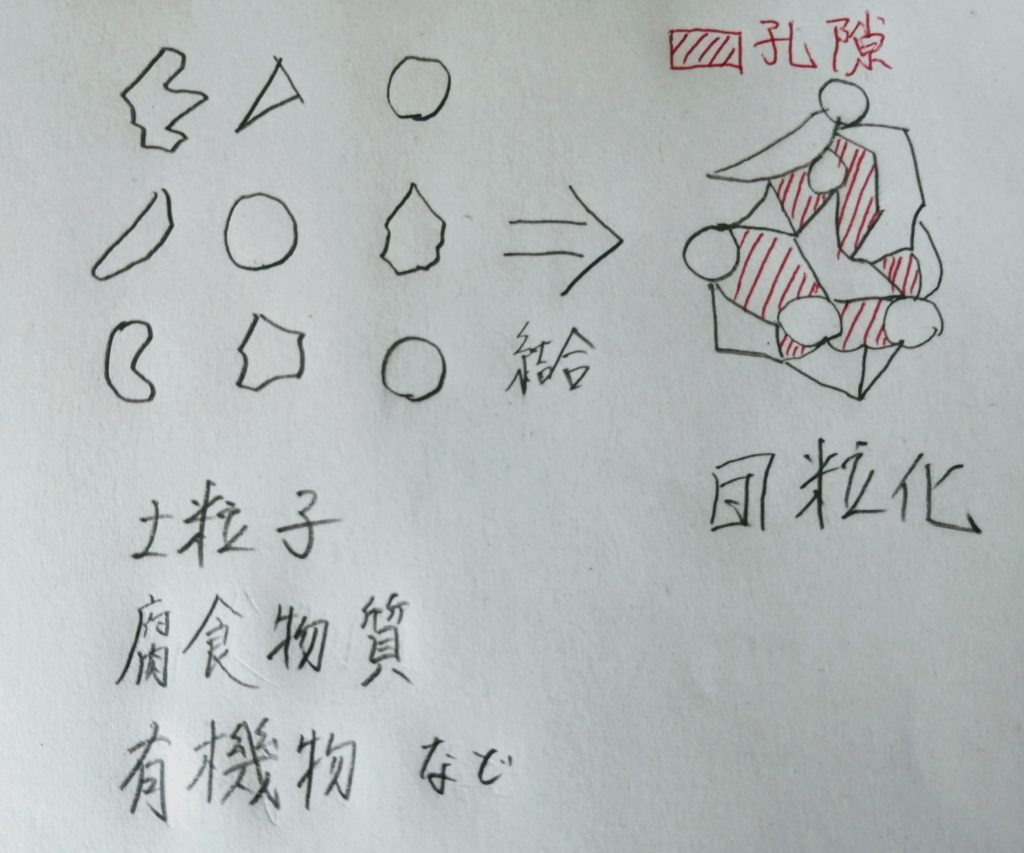 孔隙
結合
団粒化
土粒子
腐食物質
有機物 など